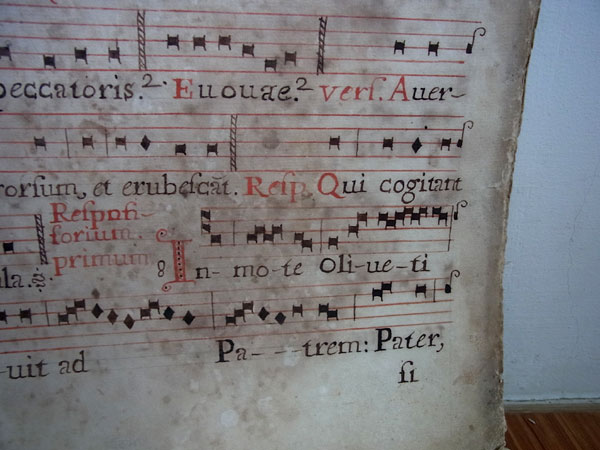 peccatoris.2. Euouae.2. vers. Auer-
rorsum, et erubescāt. Resp. Qui cogitant
Responsi-
sorium
primum.
la. 8 In- mo-te Oli-ue-ti
-uit ad Pa- - -trem: Pater,
si